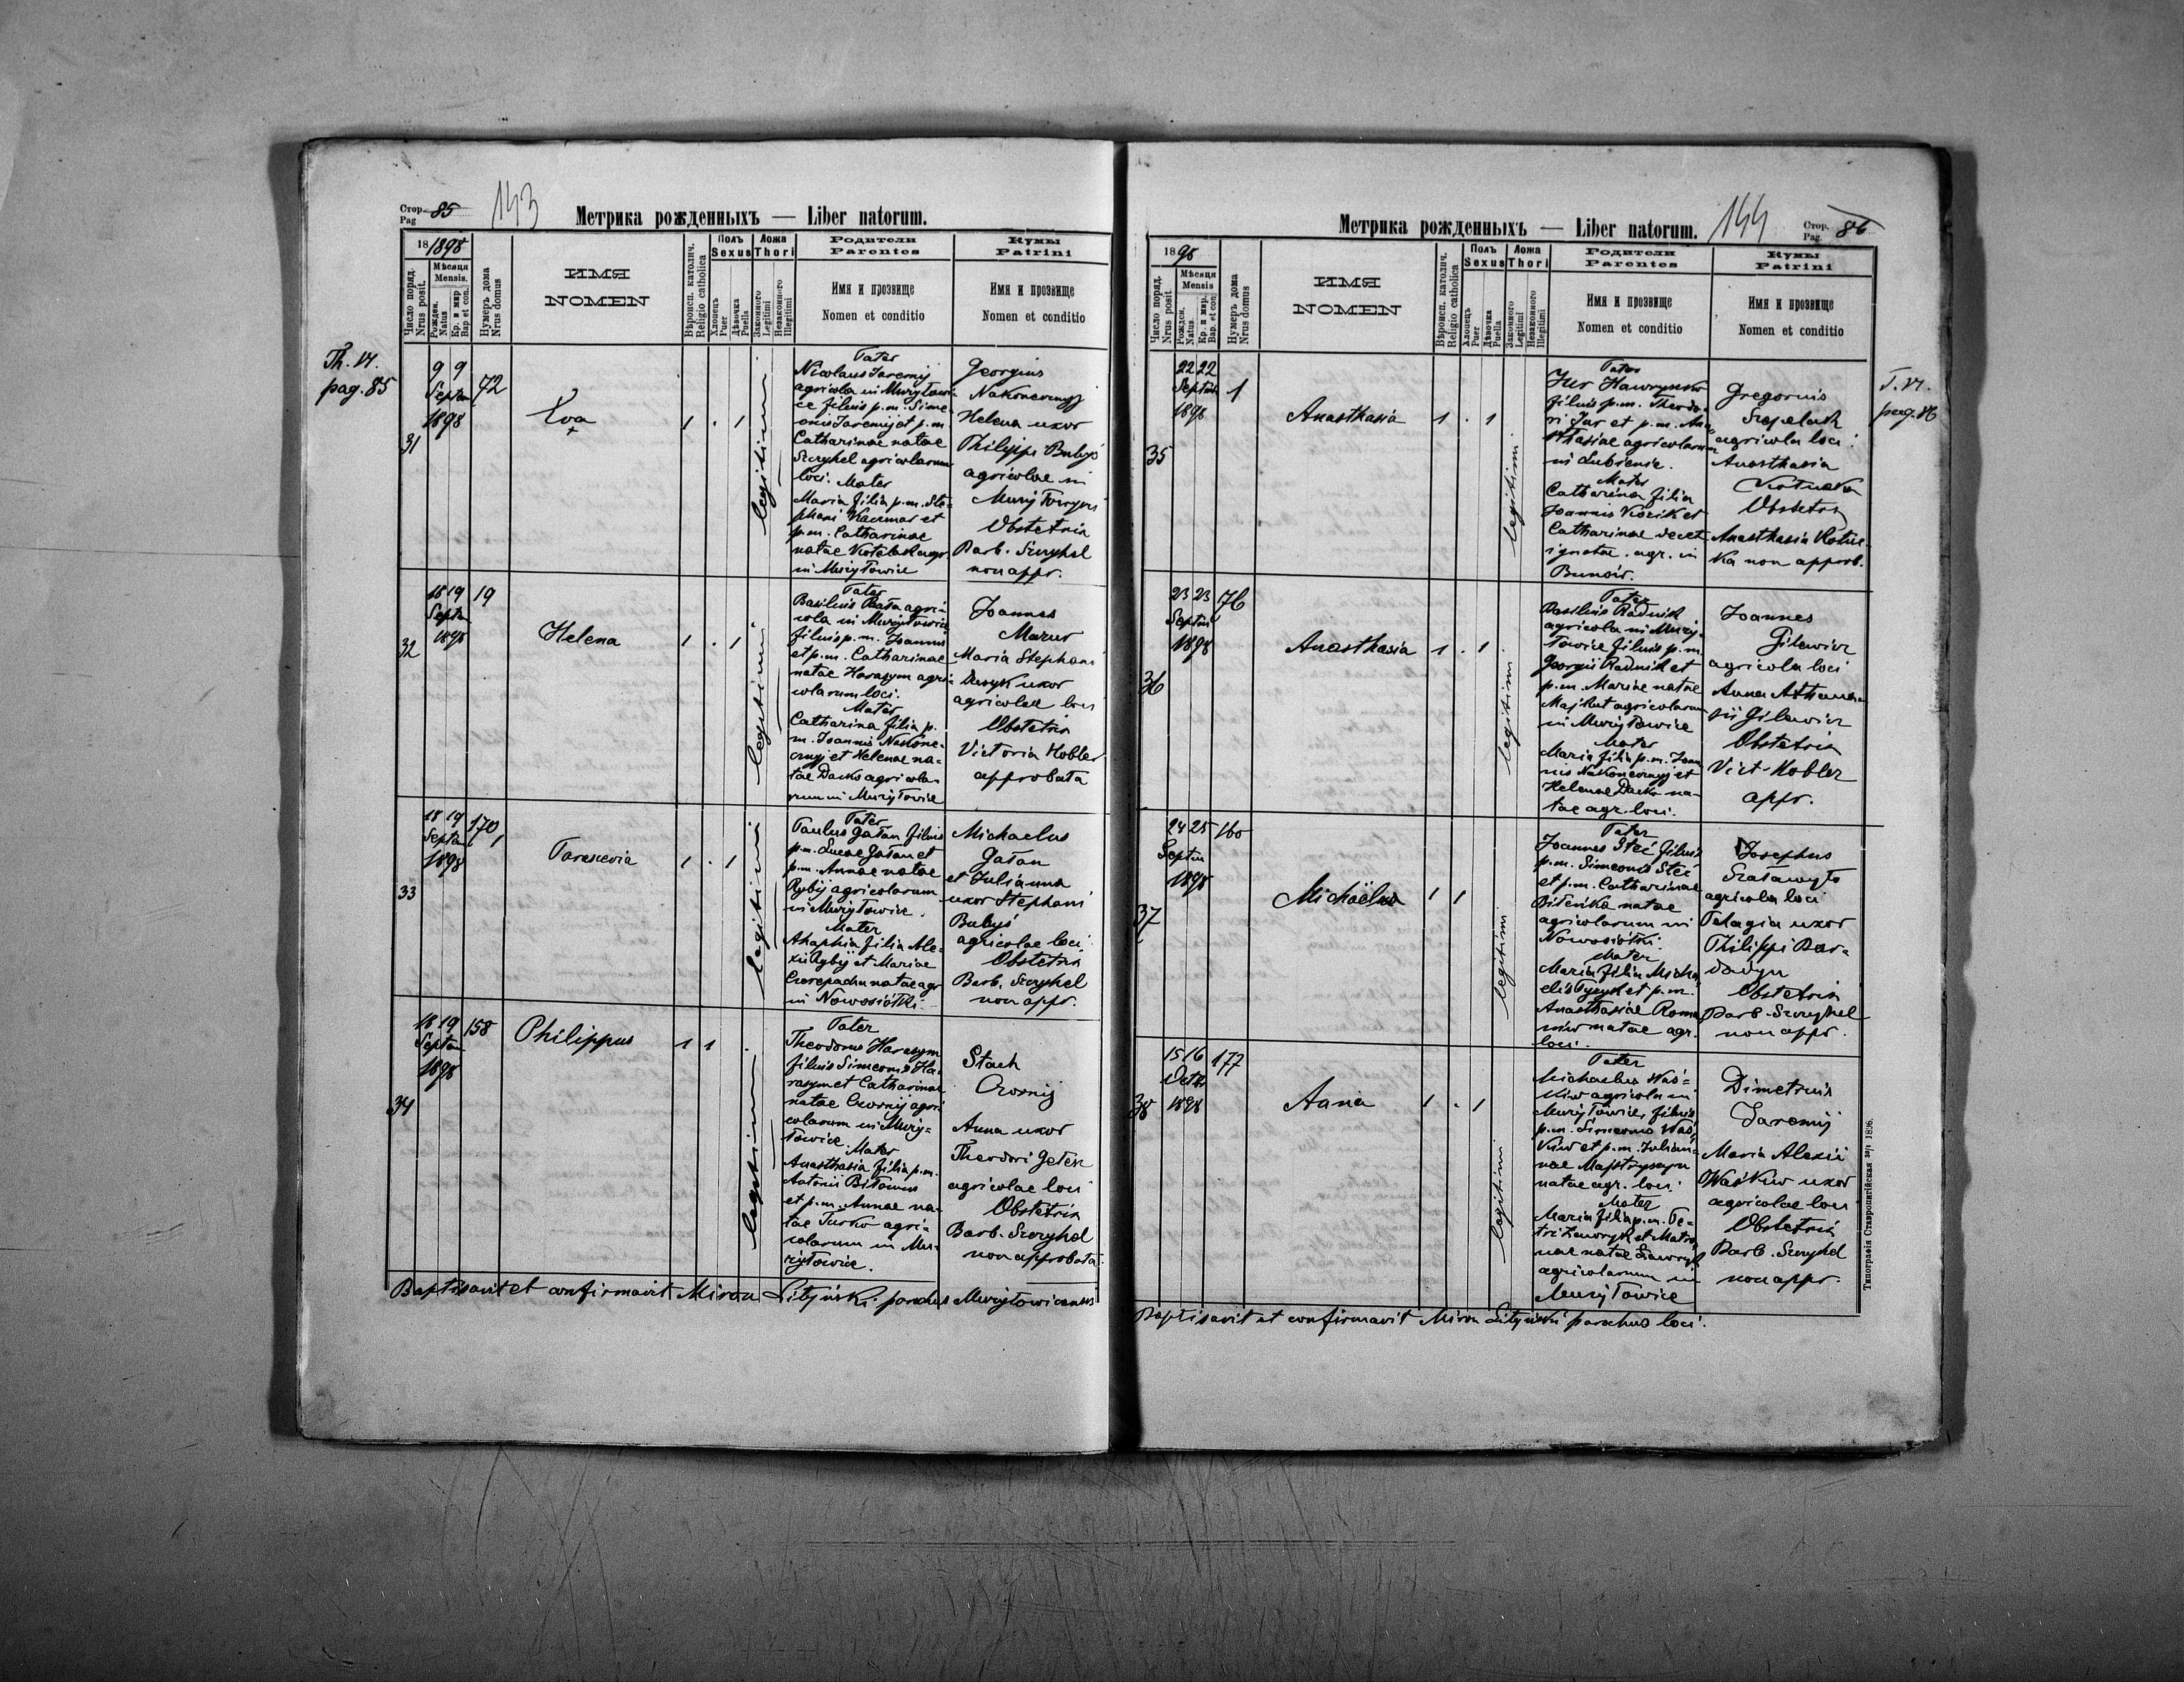 Стор. 85
Pag
143
Метрика рожденныхъ — Liber natorum.
18 1898
Число поряд. Nrus posit.
Мѣсяця Mensis.
Рожден. Natus
Кр. и мѵр. Bap. et con.
Нумеръ дома Nrus domus
ИМЯ
NOMEN
Вѣроисп. католич. Religio catholica
Полъ
Sexus
Хлопець Puer
Дѣвочка Puella
Ложа
Thori
Законного Legitimi
Незаконного Illegitimi
Родители
Parentes
Имя и прозвище
Nomen et conditio
Кумы
Patrini
Имя и прозвище
Nomen et conditio
Th. VI.
pag. 85
31
9 9
Septem
1898
72
Eva
+
1 . 1
legitimi
Pater
Nicolaus Jaremij
agricola in Muryłowi-
ce filius p.m. Sime-
onis Jaremij et p.m.
Catharinae natae
Szczyhel agricolarum
loci. Mater
Maria filia p.m. Ste-
phani Kaczmar et
p.m. Catharinae
natae agr.
in Muryłowice
Georgius
Nakonecznyj
Helena uxor
Philippi Bubyś
agricolae in
Obstetrix
Barb. Szczyhel
non appr.
32
18 19
Septem
1898
19
Helena
1 . 1
legitimi
Pater
Basilius agri-
cola in Muryłowice
filius p.m. Joannis
et p.m. Catharinae
natae Harasym agri-
colarum loci.
Mater
Catharina filia p.
m. Joannis Nakone-
cznyj et Helenae na-
tae Dacko agricola-
rum in Muryłowice
Joannes
Mazur
Maria Stephani
uxor
agricolae loci
Obstetrix
Victoria Kobler
approbata
33
18 19
Septem
1898
170
Parascevia
1 . 1
legitimi
Pater
Paulus Gałan filius
p.m. Lucae Gałan et
p.m. Annae natae
Rybij agricolarum
in Muryłowice.
Mater
Ahaphia filia Ale-
xii Rybij et Mariae
Czerepacha natae agr
in Nowosiółki.
Michaelus
Gałan
et Julianna
uxor Stephani
Bubyś
agricolae loci
Obstetrix
Barb. Szczyhel
non appr.
34
18 19
Septem
1898
158
Philippus
1 1 .
legitimi
Pater
Theodorus Harasym
filius Simeonis Ha-
rasym et Catharinae
natae Czornij agri-
colarum in Mury-
łowice. Mater
Anasthasia filia p.m.
Antonii
et p.m. Annae na-
tae Turko agri-
colarum in Mu-
ryłowice.
Stach
Czornij
Anna uxor
Theodori
agricolae loci
Obstetrix
Barb. Szczyhel
non approbata.
Baptisavit et confirmavit Miron Lityński parochus Muryłowicensis
Метрика рожденныхъ — Liber natorum.
144
Стор. 86
Pag.
18 98
Число поряд. Nrus posit.
Мѣсяця Mensis
Рожден. Natus.
Кр. и мѵр. Bap. et con
Нумеръ дома Nrus domus
ИМЯ
NOMEN
Вѣроисп. католич. Religio catholica
Полъ
Sexus
Хлопець Puer
Дѣвочка Puella
Ложа
Thori
Законного Legitimi
Незаконного Illegitimi
Родители
Parentes
Имя и прозвище
Nomen et conditio
Кумы
Patrini
Имя и прозвище
Nomen et conditio
T. VI.
pag. 86
35
22 22
Septem
1898
1
Anasthasia
1 . 1
legitimi
Pater
Jur
filius p.m. Theodo-
ri Jur et p.m. Ana-
sthasiae agricolarum
in Lubienie.
Mater
Catharina filia
Joannis Kozik et
Catharinae
ignotae. agr. in
Gregorius
agricola loci.
Anasthasia
Obstetrix
Anasthasia
non approb.
36
23 23
Septem
1898
76
Anasthasia
1 . 1
legitimi
Pater
Basilius Radnik
agricola in Mury-
łowice filius p.m.
Georgii Radnik et
p.m. Mariae natae
agricolarum
in Muryłowice
Mater
Maria filia p.m. Joan-
nis Nakonecznyj et
Helenae Dacko na-
tae agr. loci.
Joannes
Gilewicz
agricola loci
Anna Athana-
sii Gilewicz
Obstetrix
Vict. Kobler
appr.
37
24 25
Septem
1898
160
Michaëlus
1 1
legitimi
Pater
Joannes Steć filius
p.m. Simeonis Steć
et p.m. Catharinae
natae
agricolarum in
Nowosiółki.
Mater
Maria filia Micha-
elis et p.m.
Anasthasiae Roma-
natae agr.
loci.
Josephus
agricola loci
Pelagia uxor
Philippi Bar-
Obstetrix
Barb. Szczyhel
non appr.
38
15 16
Octr
1898
177
Anna
1 . 1
legitimi
Pater
Michaelus Waś-
kiw agricola in
Muryłowice, filius
p.m. Simeonis Waś-
kiw et p.m. Julian-
nae
natae agr. loci.
Mater
Maria filia p.m. Pe-
tri Ławryk et Matro-
nae natae Ławryk
agricolarum in
Muryłowice
Dimetrius
Jaremij
Maria Alexii
Waśkiw uxor
agricolae loci
Obstetrix
Barb. Szczyhel
non appr.
Baptisavit et confirmavit Miron Lityński parochus loci.
Типографія Ставропигійская 1896.